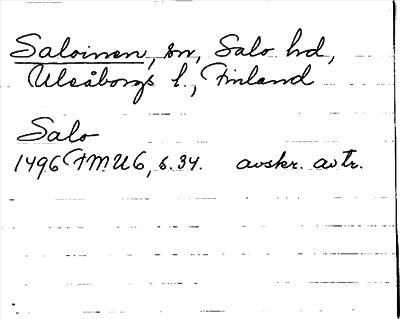 Saloinen, sn, Salo hd,
Uleåborgs l., Finland
Salo
1496 FMU 6, s. 34. avskr. avtr.